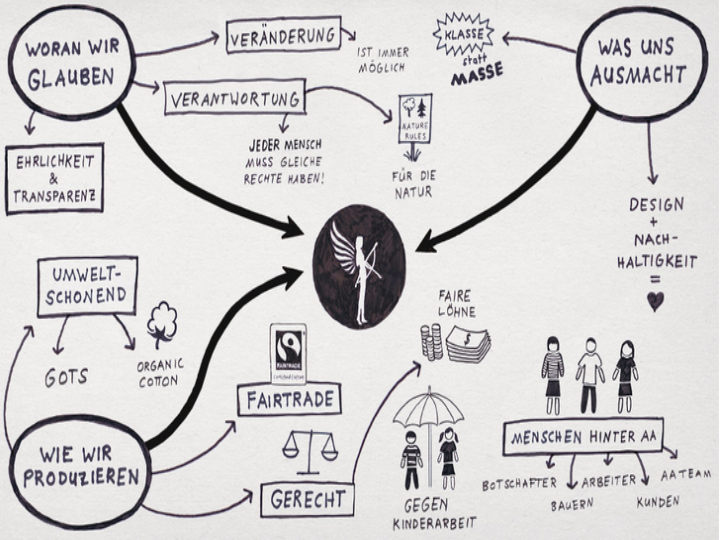 WORAN WIR
GLAUBEN
VERÄNDERUNG
IST IMMER
MÖGLICH
VERANTWORTUNG
JEDER MENSCH
MUSS GLEICHE
RECHTE HABEN!
NATURE
RULES
FÜR DIE
NATUR
EHRLICHKEIT
&
TRANSPARENZ
KLASSE
statt
MASSE
WAS UNS
AUSMACHT
DESIGN
+
NACH-
HALTIGKEIT
=
UMWELT-
SCHONEND
GOTS
ORGANIC
COTTON
WIE WIR
PRODUZIEREN
FAIRTRADE
FAIRTRADE
GERECHT
FAIRE
LÖHNE
$
GEGEN
KINDERARBEIT
MENSCHEN HINTER AA
BOTSCHAFTER
BAUERN
ARBEITER
KUNDEN
AA TEAM